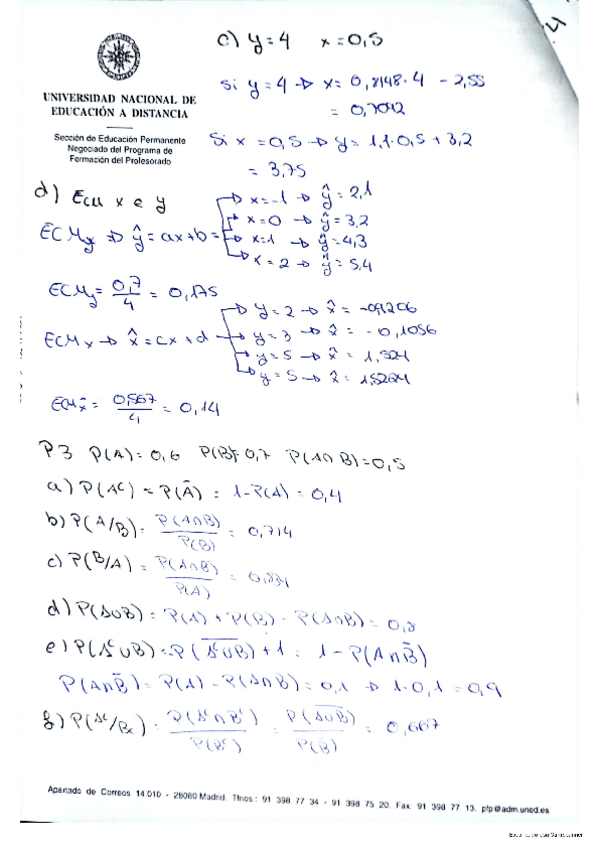 c) y=4 x=0,5
Si y=4 → x= 0,8148·4 - 2,55
= 0,7092
UNIVERSIDAD NACIONAL DE
EDUCACIÓN A DISTANCIA
Sección de Educación Permanente
Negociado del Programa de
Formación del Profesorado
Si x=0,5 → y= 1,1·0,5+3,2
= 3,75
d) Ecu x e y
x=-1 → ŷ=2,1
x=0 → ŷ=3,2
ECMy → ŷ=ax+b=
x=1 → ŷ=4,3
x=2 → ŷ=5,4
ECMy= 0,7/4 = 0,175
y=2 → x̂=
ECMx → x̂=cx+d
y=3 → x̂= -0,1056
y=5 → x̂= 1,524
y=5 → x̂: 1,5224
= 0,567/4 = 0,14
P3 P(A)=0,6 P(B)=0,7 P(A∩B)=0,5
a) P(Aᶜ) = P(Ā) = 1-P(A) = 0,4
b) P(A/B)= P(A∩B)/P(B) = 0,714
c) P(B/A) = P(A∩B)/P(A) = 0,834
d) P(A∪B) = P(A) + P(B) - P(A∩B) = 0,8
e) P(Aᶜ∪B) = -P(\overline{Aᶜ∪B}) + 1 = 1 - P(A∩B̄)
P(A∩B̄) = P(A) - P(A∩B) = 0,1 → 1-0,1 = 0,9
f) P(Aᶜ/Bᶜ) = P(Aᶜ∩Bᶜ)/P(Bᶜ) = P(\overline{A∪B})/P(B̄) = 0,667
Apartado de Correos 14.010 - 28080 Madrid. Tfnos.: 91 398 77 34 - 91 398 75 20. Fax: 91 398 77 13. pfp@adm.uned.es